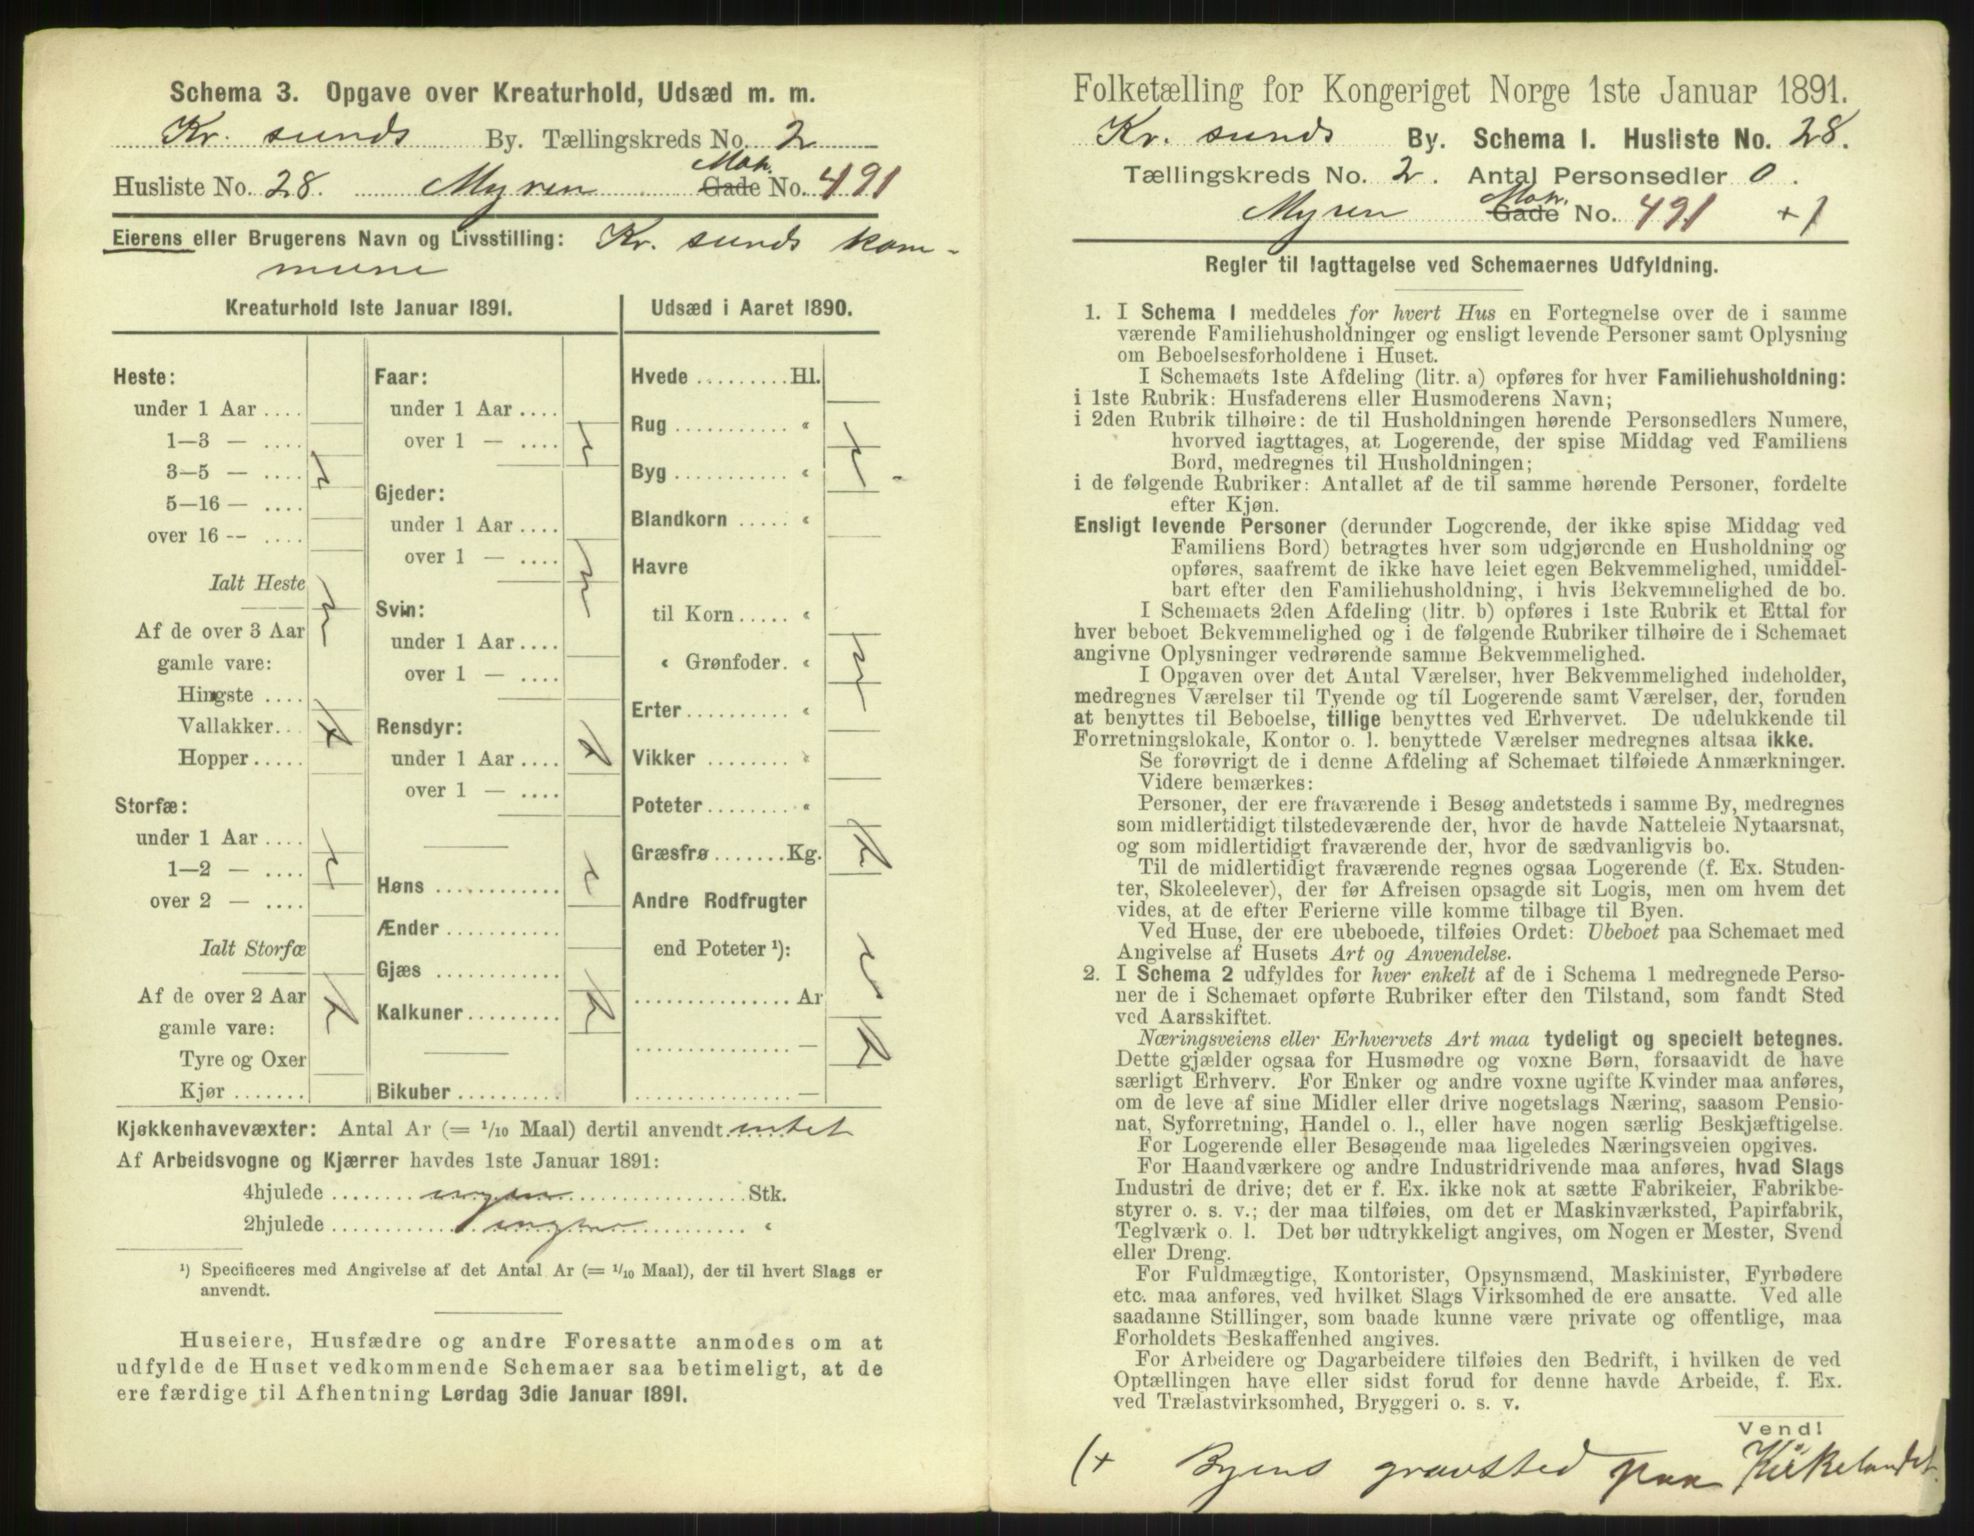 Schema 3. Opgave over Kreaturhold, Udsæd m. m.
Kr. sunds By. Tællingskreds No. 2
Husliste No. 28. Myren Matr. Gade No. 491
Eierens eller Brugerens Navn og Livsstilling: Kr. sunds kom-
mune
Kreaturhold 1ste Januar 1891.
Heste:
under 1 Aar ....
1—3 — ....
3—5 — ....
5—16 — ....
over 16 -- ....
Ialt Heste
Af de over 3 Aar
gamle vare:
Hingste ....
Vallakker...
Hopper.....
Storfæ:
under 1 Aar ....
1—2 — ....
over 2 — ....
Ialt Storfæ
Af de over 2 Aar
gamle vare:
Tyre og Oxer
Kjør .......
Faar:
under 1 Aar ....
over 1 — ....
Gjeder:
under 1 Aar ....
over 1 — ....
Svin:
under 1 Aar....
over 1 — ....
Rensdyr:
under 1 Aar ....
over 1 — ....
Høns ............
Ænder ...........
Gjæs ............
Kalkuner.........
Bikuber ..........
Udsæd i Aaret 1890.
Hvede .........Hl.
Rug ........... «
Byg ........... «
Blandkorn ..... «
Havre
til Korn..... «
« Grønfoder. «
Erter .......... «
Vikker ........ «
Poteter ........ «
Græsfrø .......Kg.
Andre Rodfrugter
end Poteter ¹):
............... Ar
............... —
............... —
Kjøkkenhavevæxter: Antal Ar (= 1/10 Maal) dertil anvendt intet
Af Arbeidsvogne og Kjærrer havdes 1ste Januar 1891:
4hjulede ........ ingen ................Stk.
2hjulede ............ ingen ............ «
¹) Specificeres med Angivelse af det Antal Ar (= 1/10 Maal), der til hvert Slags er
anvendt.
Huseiere, Husfædre og andre Foresatte anmodes om at
udfylde de Huset vedkommende Schemaer saa betimeligt, at de
ere færdige til Afhentning Lørdag 3die Januar 1891.
Folketælling for Kongeriget Norge 1ste Januar 1891.
Kr. sunds By. Schema I. Husliste No. 28.
Tællingskreds No. 2. Antal Personsedler 0.
Myren Matr. Gade No. 491 +1
Regler til Iagttagelse ved Schemaernes Udfyldning.
1. I Schema I meddeles for hvert Hus en Fortegnelse over de i samme
værende Familiehusholdninger og ensligt levende Personer samt Oplysning
om Beboelsesforholdene i Huset.
I Schemaets 1ste Afdeling (litr. a) opføres for hver Familiehusholdning:
i 1ste Rubrik: Husfaderens eller Husmoderens Navn;
i 2den Rubrik tilhøire: de til Husholdningen hørende Personsedlers Numere,
hvorved iagttages, at Logerende, der spise Middag ved Familiens
Bord, medregnes til Husholdningen;
i de følgende Rubriker: Antallet af de til samme hørende Personer, fordelte
efter Kjøn.
Ensligt levende Personer (derunder Logerende, der ikke spise Middag ved
Familiens Bord) betragtes hver som udgjørende en Husholdning og
opføres, saafremt de ikke have leiet egen Bekvemmelighed, umiddel-
bart efter den Familiehusholdning, i hvis Bekvemmelighed de bo.
I Schemaets 2den Afdeling (litr. b) opføres i 1ste Rubrik et Ettal for
hver beboet Bekvemmelighed og i de følgende Rubriker tilhøire de i Schemaet
angivne Oplysninger vedrørende samme Bekvemmelighed.
I Opgaven over det Antal Værelser, hver Bekvemmelighed indeholder,
medregnes Værelser til Tyende og til Logerende samt Værelser, der, foruden
at benyttes til Beboelse, tillige benyttes ved Erhvervet. De udelukkende til
Forretningslokale, Kontor o. l. benyttede Værelser medregnes altsaa ikke.
Se forøvrigt de i denne Afdeling af Schemaet tilføiede Anmærkninger.
Videre bemærkes:
Personer, der ere fraværende i Besøg andetsteds i samme By, medregnes
som midlertidigt tilstedeværende der, hvor de havde Natteleie Nytaarsnat,
og som midlertidigt fraværende der, hvor de sædvanligvis bo.
Til de midlertidigt fraværende regnes ogsaa Logerende (f. Ex. Studen-
ter, Skoleelever), der før Afreisen opsagde sit Logis, men om hvem det
vides, at de efter Ferierne ville komme tilbage til Byen.
Ved Huse, der ere ubeboede, tilføies Ordet: Ubeboet paa Schemaet med
Angivelse af Husets Art og Anvendelse.
2. I Schema 2 udfyldes for hver enkelt af de i Schema 1 medregnede Perso-
ner de i Schemaet opførte Rubriker efter den Tilstand, som fandt Sted
ved Aarsskiftet.
Næringsveiens eller Erhvervets Art maa tydeligt og specielt betegnes.
Dette gjælder ogsaa for Husmødre og voxne Børn, forsaavidt de have
særligt Erhverv. For Enker og andre voxne ugifte Kvinder maa anføres,
om de leve af sine Midler eller drive nogetslags Næring, saasom Pensio-
nat, Syforretning, Handel o. l., eller have nogen særlig Beskjæftigelse.
For Logerende eller Besøgende maa ligeledes Næringsveien opgives.
For Haandværkere og andre Industridrivende maa anføres, hvad Slags
Industri de drive; det er f. Ex. ikke nok at sætte Fabrikeier, Fabrikbe-
styrer o. s. v.; der maa tilføies, om det er Maskinværksted, Papirfabrik,
Teglværk o. l. Det bør udtrykkeligt angives, om Nogen er Mester, Svend
eller Dreng.
For Fuldmægtige, Kontorister, Opsynsmænd, Maskinister, Fyrbødere
etc. maa anføres, ved hvilket Slags Virksomhed de ere ansatte. Ved alle
saadanne Stillinger, som baade kunne være private og offentlige, maa
Forholdets Beskaffenhed angives.
For Arbeidere og Dagarbeidere tilføies den Bedrift, i hvilken de ved
Optællingen have eller sidst forud for denne havde Arbeide, f. Ex.
ved Trælastvirksomhed, Bryggeri o. s. v.
Vend!
(+ Byens gravsted paa Kirkelandet.